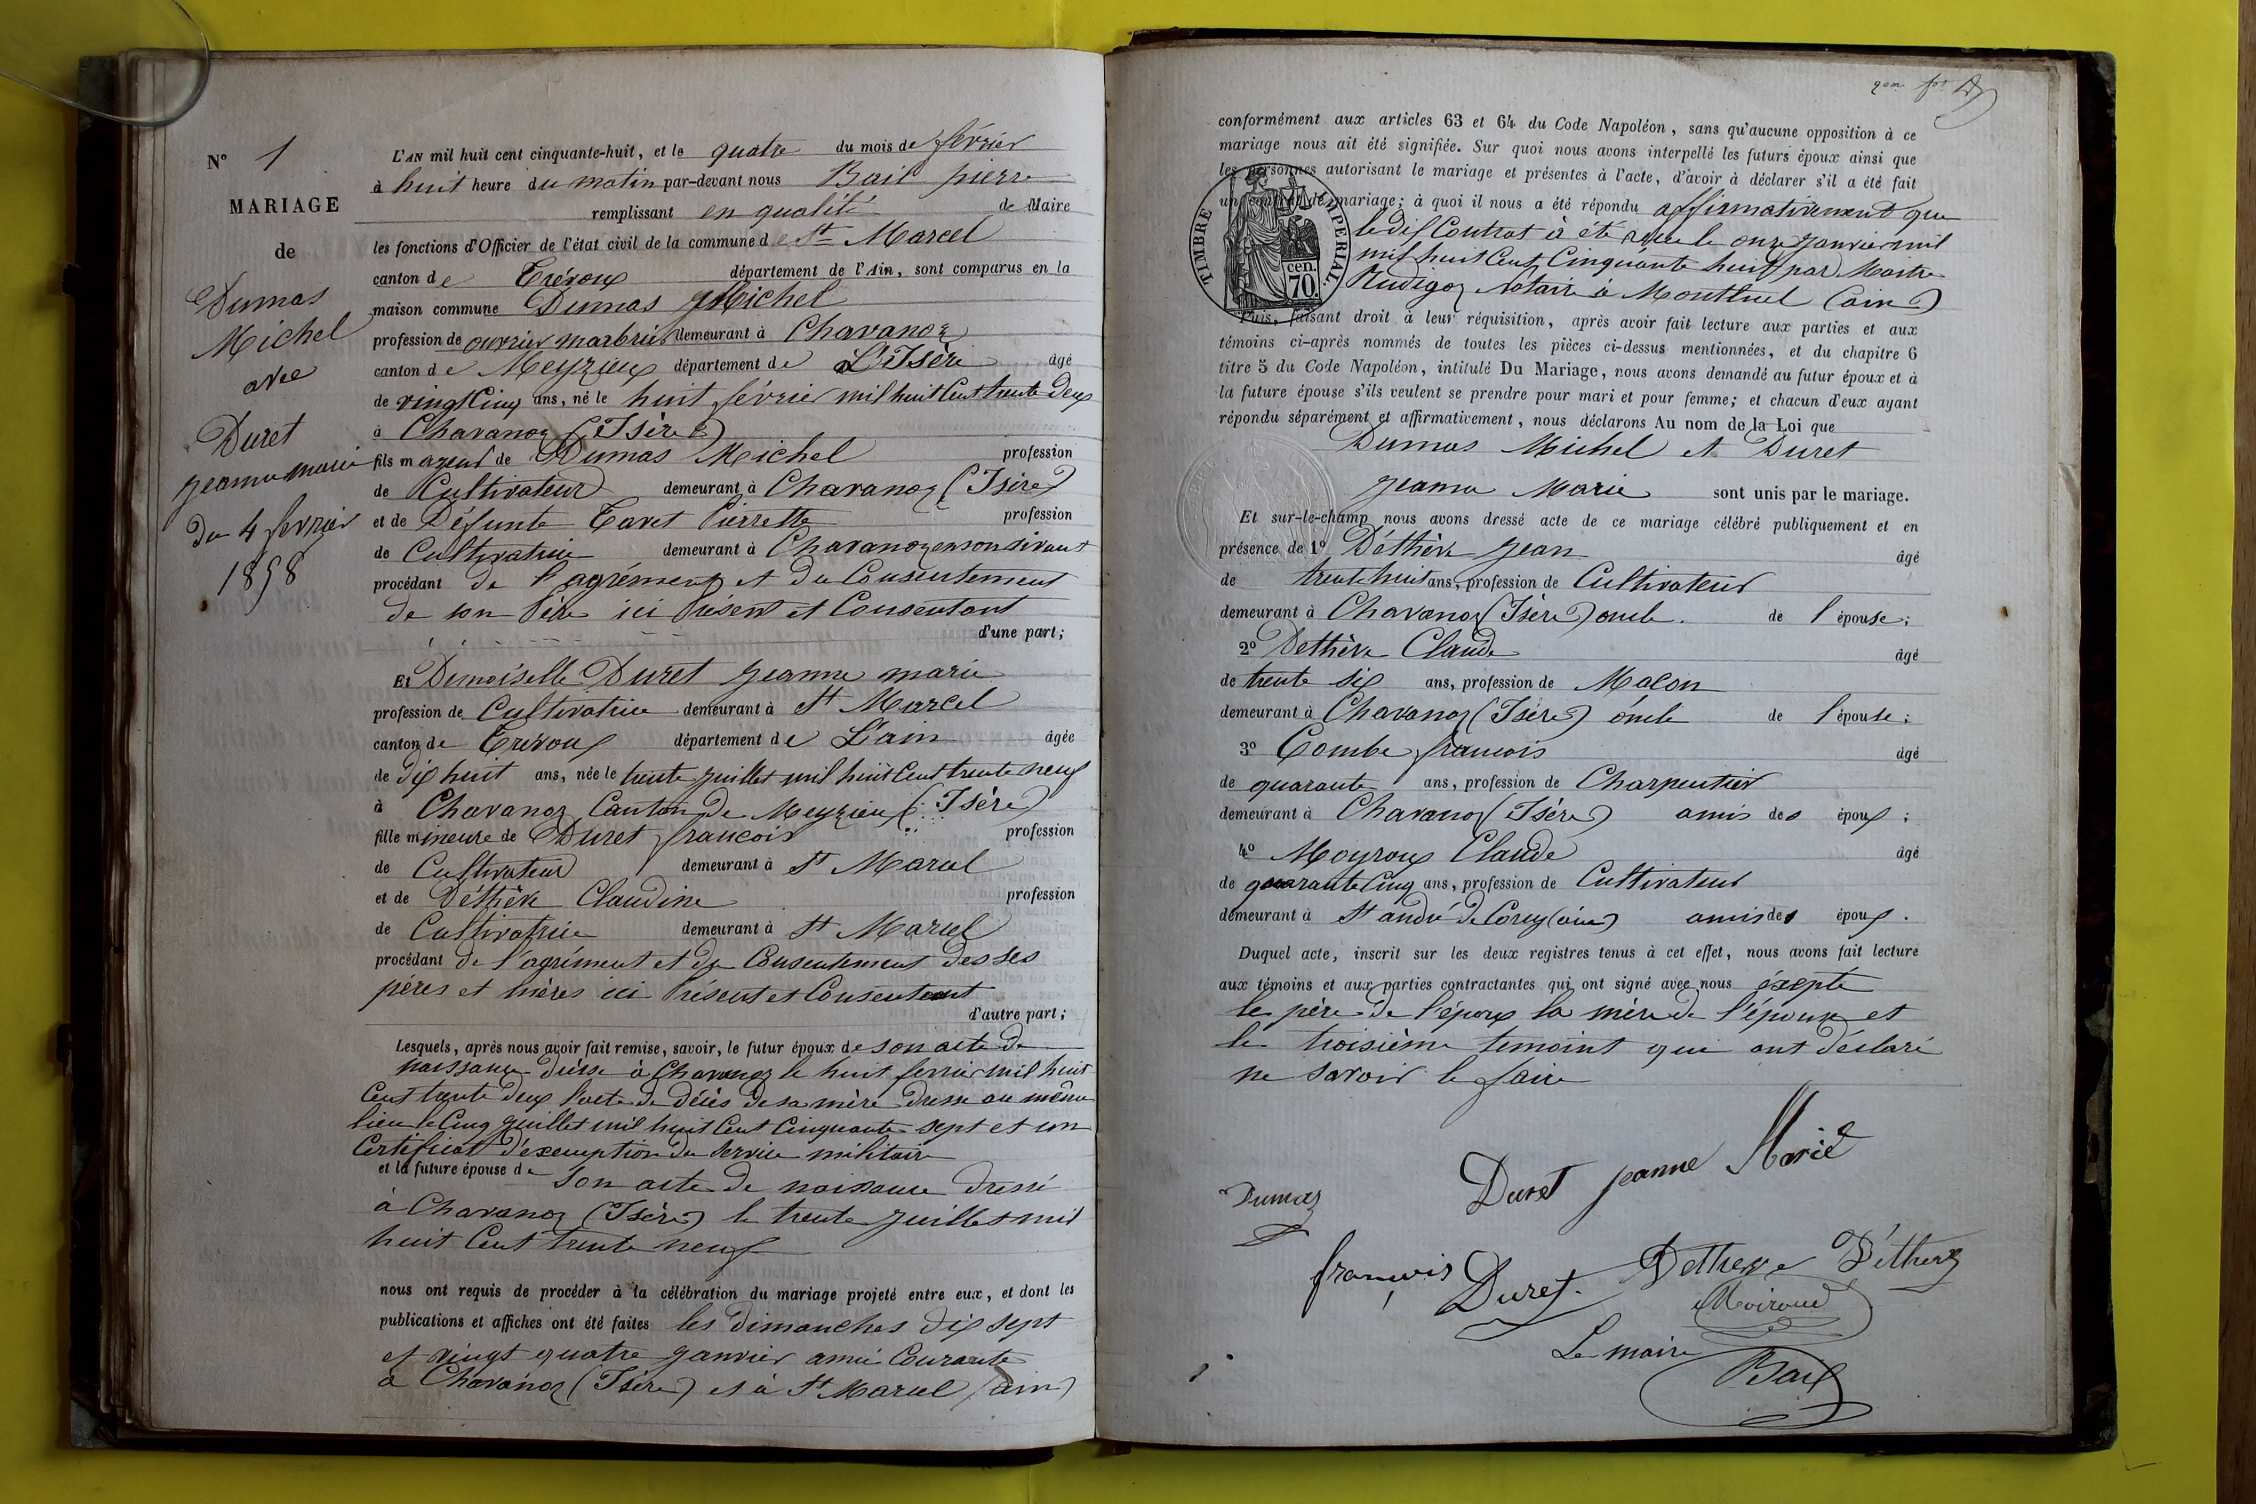 N° 1
MARIAGE
de
Dumas
Michel
avec
Duret
jeanne marie
du 4 fevrier
1858
L'AN mil huit cent cinquante-huit, et le quatre du mois de février
à huit heure du matin par-devant nous Bail pierre
remplissant en qualité de Maire
les fonctions d'Officier de l'état civil de la commune de St Marcel
canton de Trévoux département de l'Ain, sont comparus en la
maison commune Dumas Michel
profession de ouvrier marbrier demeurant à Chavanoz
canton de Meyzieux département de L'Isère âgé
de vingt Cinq ans, né le huit février mil huit Cent trente deux
à Chavanoz (Isère)
fils majeur de Dumas Michel profession
de Cultivateur demeurant à Chavanoz (Isère)
et de Défunte Tavet Pierrette profession
de Cultivatrice demeurant à Chavanoz en son vivant
procédant de l'agrément et du Consentement
de son Père ici Présent et Consentant
d'une part;
Et Demoiselle Duret jeanne marie
profession de Cultivatrice demeurant à St Marcel
canton de Trévoux département de L'ain âgée
de dix huit ans, née le trente juillet mil huit Cent trente neuf
à Chavanoz Canton de Meyzieu (Isère)
fille mineure de Duret francois profession
de Cultivateur demeurant à St Marcel
et de Déthève Claudine profession
de Cultivatrice demeurant à St Marcel
procédant de l'agrément et du Consentement des ses
pères et mères ici Présent et Consentant
d'autre part;
Lesquels, après nous avoir fait remise, savoir, le futur époux de son acte de
naissance à Chavanoz le huit ferrier mil huit
Cent trente deux l'acte de décès de sa mère dresse au même
lieu le Cinq juillet mil huit Cent Cinquante sept et un
Certificat d'exemption du service militaire
et la future épouse de son acte de naissance dressé
à Chavanoz (Isère) le trente juillet mil
huit Cent trente neuf
nous ont requis de procéder à la célébration du mariage projeté entre eux, et dont les
publications et affiches ont été faites les dimanches dix sept
et vingt quatre janvier Courante
à Chavanoz (Isère) et à St Marcel (ain)
conformément aux articles 63 et 64 du Code Napoléon, sans qu'aucune opposition à ce
mariage nous ait été signifiée. Sur quoi nous avons interpellé les futurs époux ainsi que
les personnes autorisant le mariage et présentes à l'acte, d'avoir à déclarer s'il a été fait
un contrat de mariage; à quoi il nous a été répondu affirmativement que
le dit Contrat à été le onze janvier mil
mil huit Cent Cinquante huit par Maitre
Rudigoz Notaire à Montluel (ain)
TIMBRE IMPERIAL
70 cen.
Puis, faisant droit à leur réquisition, après avoir fait lecture aux parties et aux
témoins ci-après nommés de toutes les pièces ci-dessus mentionnées, et du chapitre 6
titre 5 du Code Napoléon, intitulé Du Mariage, nous avons demandé au futur époux et à
la future épouse s'ils veulent se prendre pour mari et pour femme; et chacun d'eux ayant
répondu séparément et affirmativement, nous déclarons Au nom de la Loi que
Dumas Michel et Duret
jeanne Marie sont unis par le mariage.
Et sur-le-champ nous avons dressé acte de ce mariage célébré publiquement et en
présence de 1° Déthève jean âgé
de trente huit ans, profession de Cultivateur
demeurant à Chavanoz (Isère) oncle de l'épouse;
2° Dethève Claude âgé
de trente six ans, profession de Macon
demeurant à Chavanoz (Isère) oncle de l'épouse;
3° Combe francois âgé
de quarante ans, profession de Charpentier
demeurant à Chavanoz (Isère) amis des époux;
4° Moyroux Claude âgé
de quarante Cinq ans, profession de Cultivateur
demeurant à St andré de Corcy (ain) amis des époux.
Duquel acte, inscrit sur les deux registres tenus à cet effet, nous avons fait lecture
aux témoins et aux parties contractantes qui ont signé avec nous éxepté
le père de l'époux la mère de l'épouse et
le troisième temoint qui ont déclaré
ne savoir le faire
Duret jeanne Marie
Dumas
françois Duret. Dethève Déthève
Moiroud
Le maire
Bail